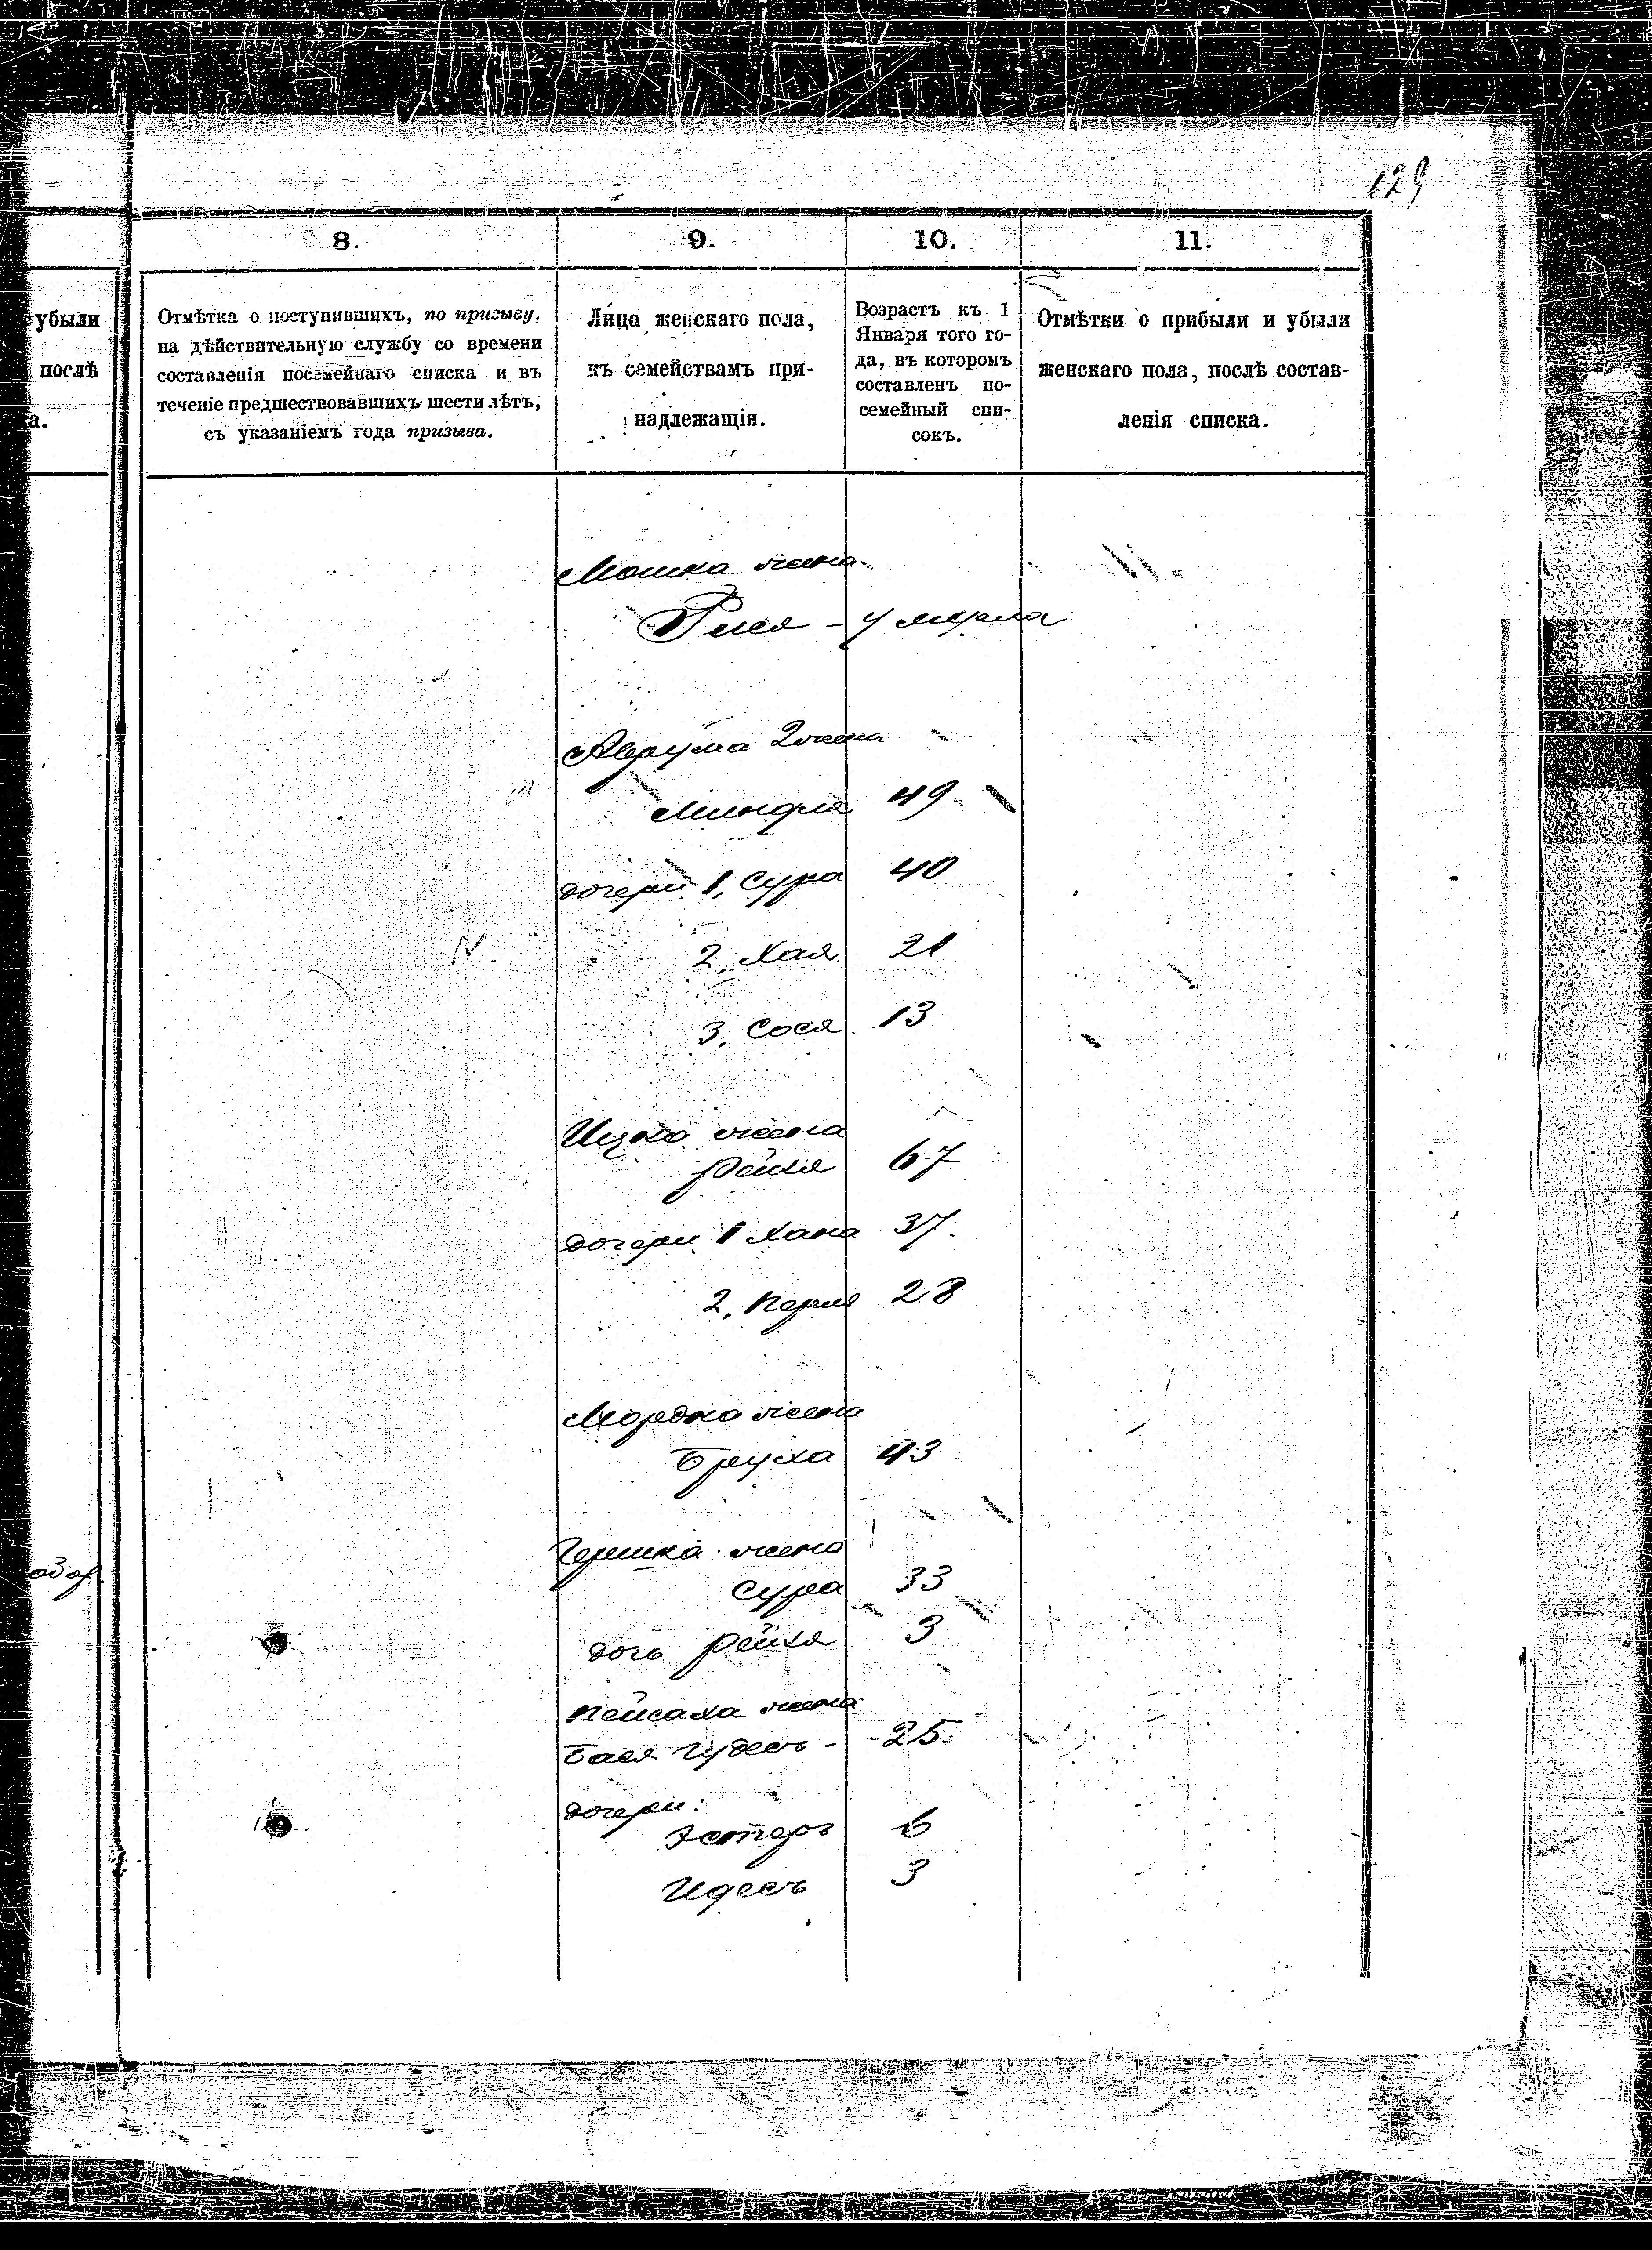 129
8.
9.
10.
11.
убыли
послѣ
а.
Отмѣтка о поступившихъ, по призыву,
на дѣйствительную службу со времени
составленія посемейнаго списка и въ
теченіе предшествовавшихъ шести лѣтъ,
съ указаніемъ года призыва.
Лица женскаго пола,
къ семействамъ при-
надлежащія.
Возрастъ къ 1
Января того го-
да, въ которомъ
составленъ по-
семейный спи-
сокъ.
Отмѣтки о прибыли и убыли
женскаго пола, послѣ состав-
ленія списка.
Мошка жена
умерла
Аврума 2 жена
Миндля 49
дочери 1, Сура 40
2, Хая 21
3, Сося 13
Ицка жена
Рейхля 67
дочери 1 Хана 37.
2, Перля 28
Мордка жена
Бруха 43
Гершка жена
Сура 33
дочь Рейхля 3
Пейсаха жена
Бася Гудесъ - 25
дочери:
Эстеръ 6
Идесъ 3